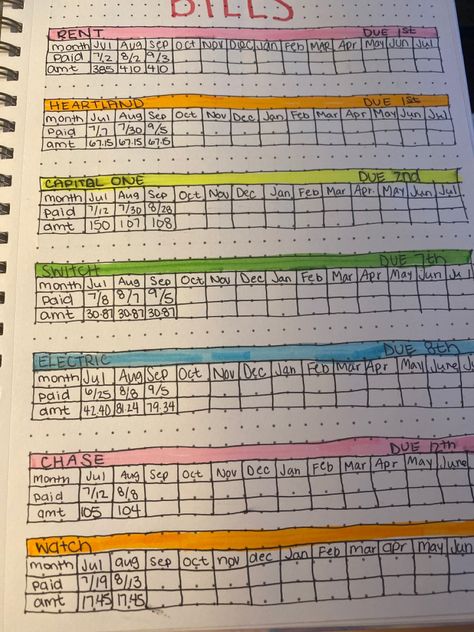 BILLS
RENT DUE 1st
month Jul Aug Sep Oct Nov Dec Jan Feb Mar Apr May Jun Jul
paid 7/2 8/2 9/3
amt 385 410 410
HEARTLAND DUE 1st
month Jul Aug Sep Oct Nov Dec Jan Feb Mar Apr May Jun Jul
Paid 7/7 7/30 9/5
amt 67.15 67.15 67.15
CAPITAL ONE DUE 2nd
month Jul Aug Sep Oct Nov Dec Jan Feb Mar Apr May Jun Jul
Paid 7/12 7/30 8/28
amt 150 107 108
SWITCH DUE 7th
month Jul Aug Sep Oct Nov Dec Jan Feb Mar Apr May Jun
Paid 7/8 8/7 9/5
amt 30.87 30.87 30.87
ELECTRIC DUE 8th
month Jul Aug Sep Oct Nov Dec Jan Feb Mar Apr May June
Paid 6/25 8/8 9/5
amt 42.40 81.24 79.34
CHASE DUE 12th
Month Jul Aug Sep Oct Nov Dec Jan Feb Mar Apr May June
paid 7/12 8/8
amt 105 104
watch
month Jul aug Sep oct nov dec Jan Feb mar apr may Jun
paid 7/19 8/13
amt 17.45 17.45